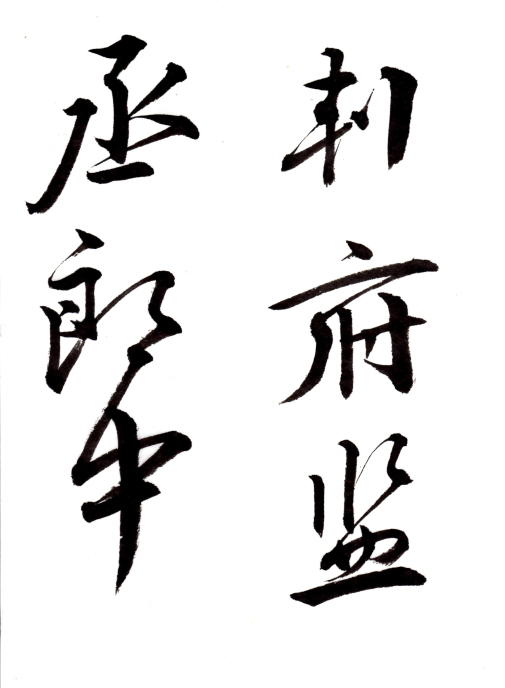 刺府监
丞郎中